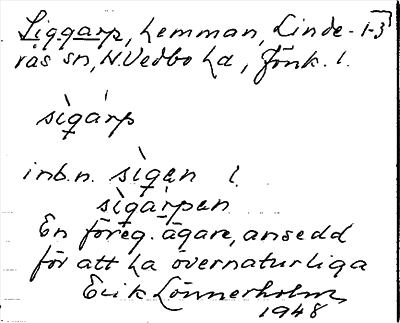 Siggarp, hemman, Linde- 1-3
rås sn, N. Vedbo hd, Jönk. l.
sìgàrp
inb.n. sìgən l.
sìgàrpən
En föreg. ägare, ansedd
för att ha övernaturliga
Erik Lönnerholm
1948